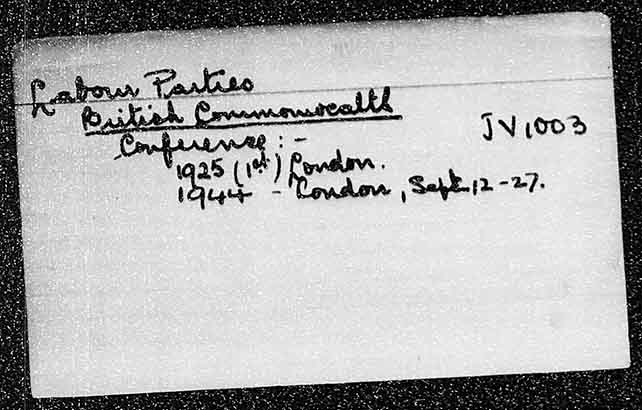 Labour Parties
British Commonwealth
Conference :-
JV1003
1925 (1st) London.
1944 - London, Sept. 12-27.